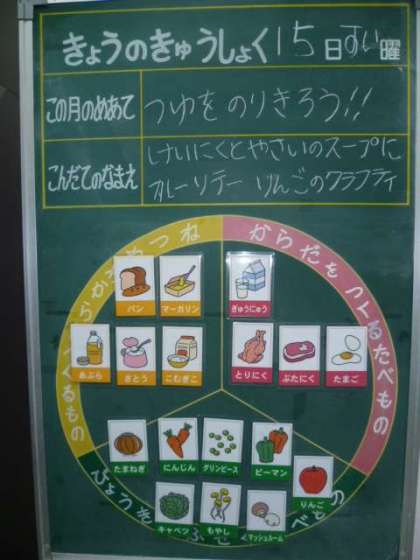 きょうのきゅうしょく 15日 すい 曜
この月のめあて つゆを のりきろう!!
こんだてのなまえ けいにくとやさいのスープに
フルーツデー りんごのクラフティ
ねつ
からだをつくるたべもの
パン マーガリン ぎゅうにゅう
あぶら さとう こむぎこ とりにく ぶたにく たまご
たまねぎ にんじん グリンピース ピーマン りんご
キャベツ もやし マッシュルーム